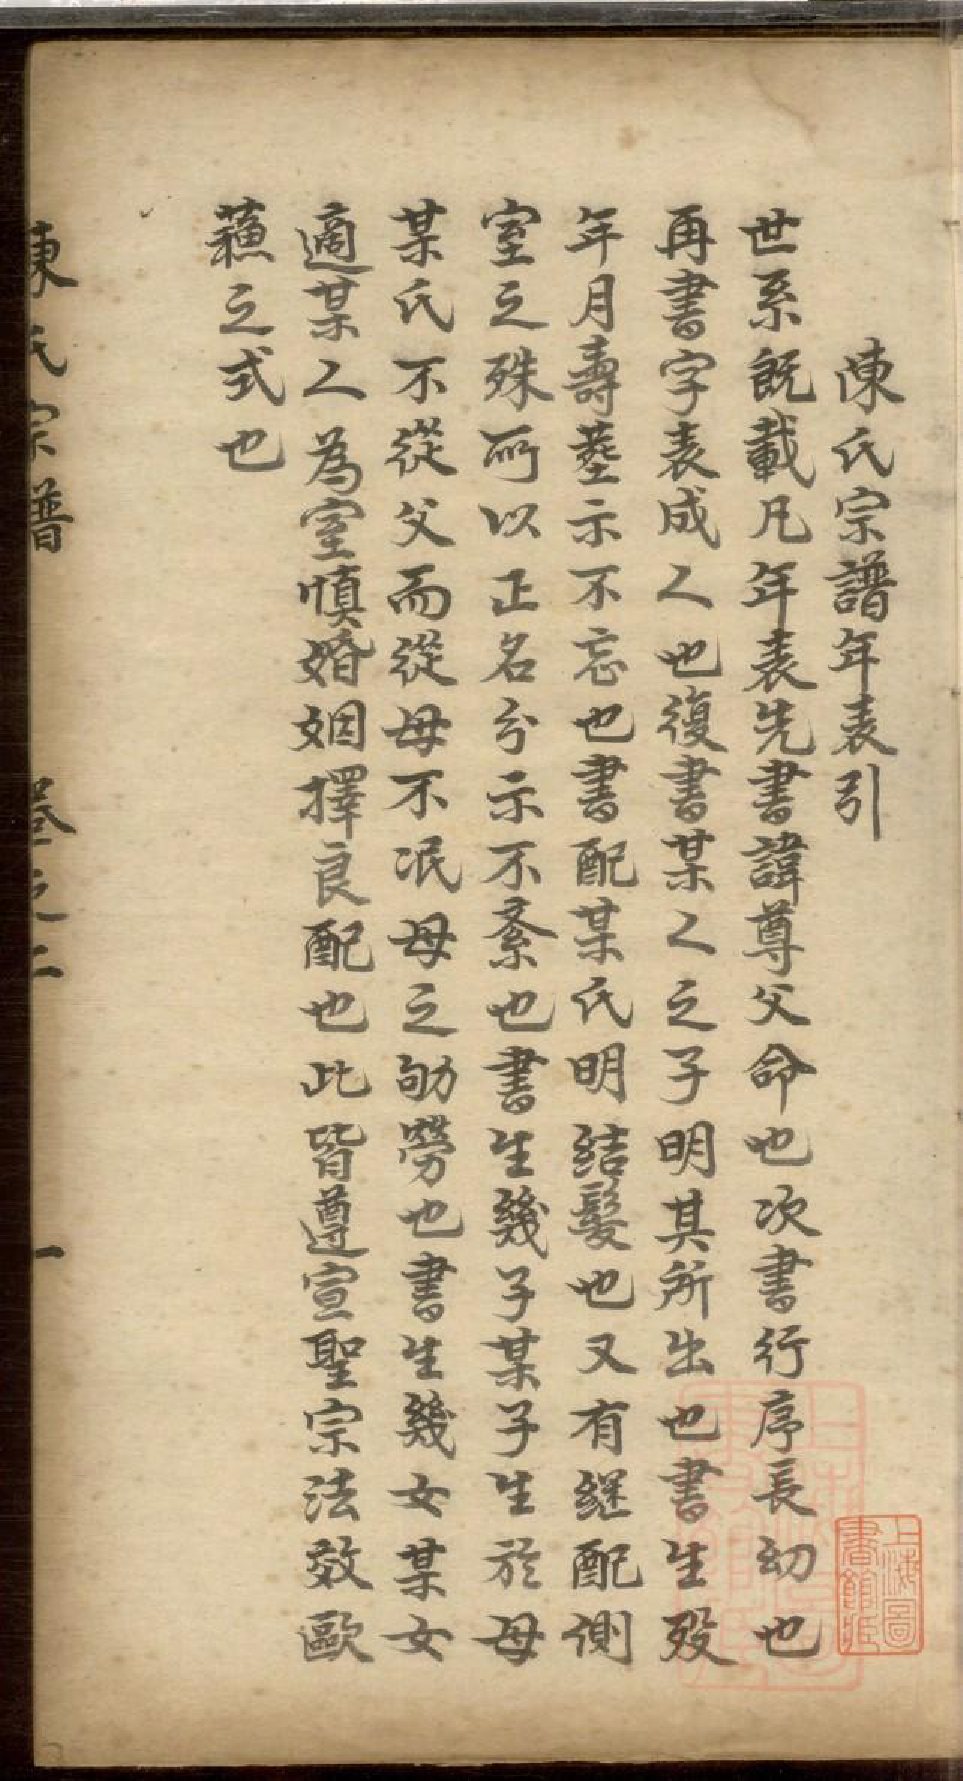 陳氏宗譜年表引
世系既載凡年表先書諱尊父命也次書行序長幼也
再書字表成人也復書某人之子明其所出也書生歿
年月壽塟示不忘也書配某氏明結髮也又有継配側
室之殊所以正名分示不紊也書生幾子某子生於母
某氏不從父而從母不泯母之劬勞也書生幾女某女
適某人為室慎婚姻擇良配也此皆遵宣聖宗法效歐
蘓之式也
陳氏宗譜 卷之二 一
上海圖
書館藏